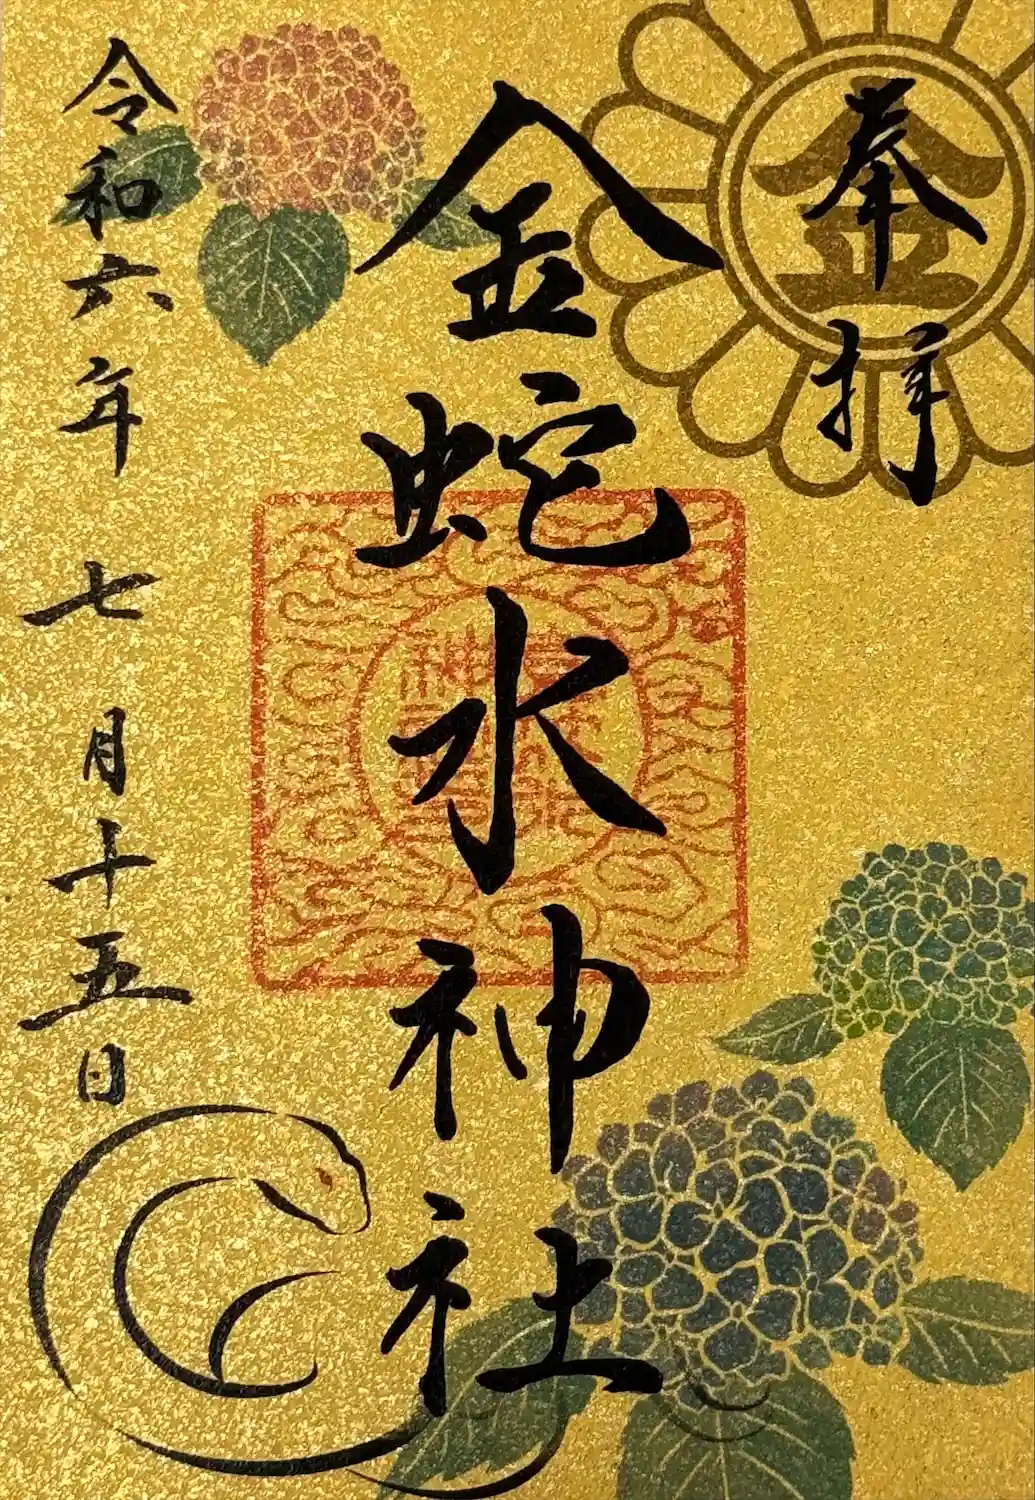 奉拝
金
金蛇水神社
令和六年 七月十五日